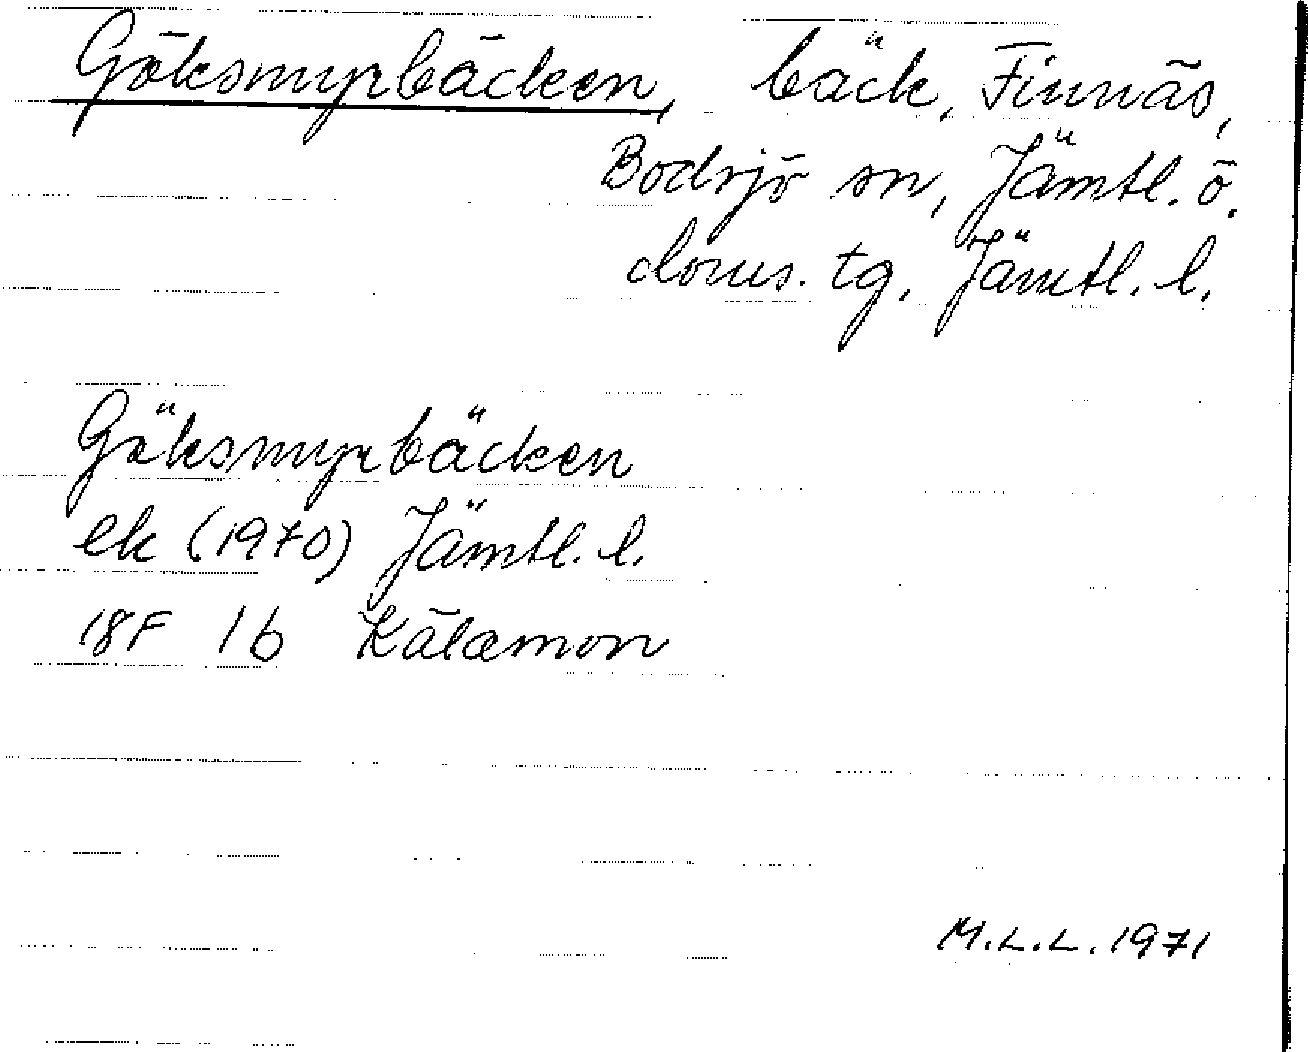 Göksmyrbäcken, bäck, Finnäs,
Bodsjö sn, Jämtl. ö.
doms. tg, Jämtl. l.
Göksmyrbäcken
ek (1970) Jämtl. l.
18F 1b Kälamon
M.L.L. 1971